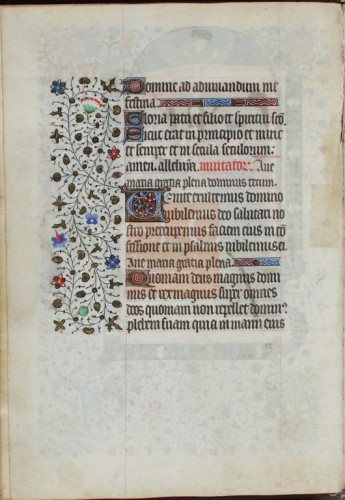 Domine ad adiuuandum me
festina.
Gloria patri et filio et spiritui sco.
Sicut erat in principio et nunc
et semper et in secula seculorum.
amen. alleluya. Inuitator. Aue
maria gratia plena dominus tecum.
Venite exultemus domino
iubilemus deo salutari no
stro preoccupemus faciem eius in co
fessione et in psalmis iubilemus ei.
Aue maria gratia plena
Quoniam deus magnus domi
nus et rex magnus super omnes
deos quoniam non repellet domin
plebem suam quia in manu eius